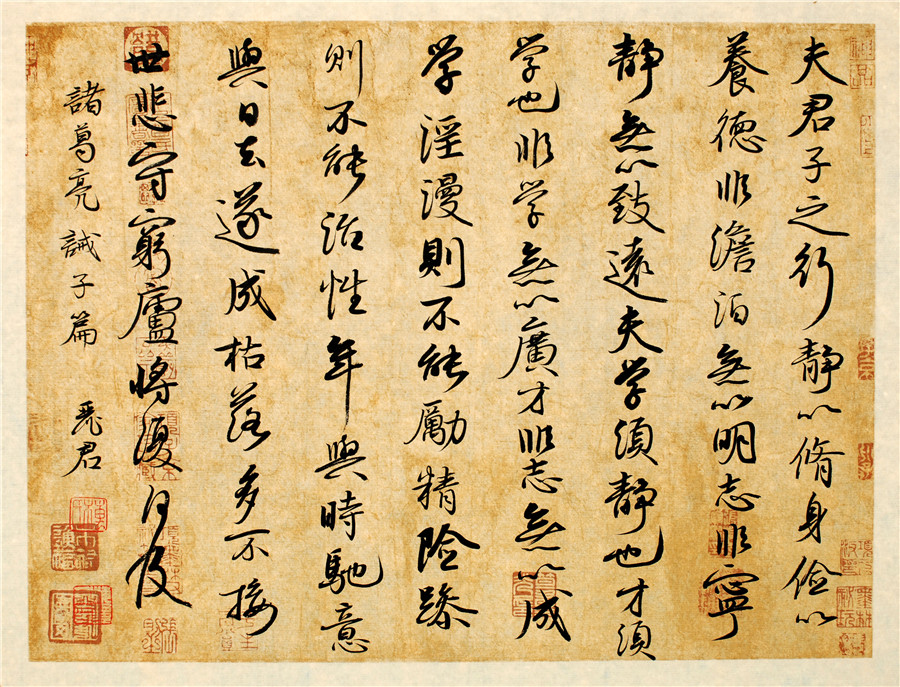 夫君子之行静以脩身俭以
養德非澹泊無以明志非寧
静無以致遠夫学須静也才須
学也非学無以廣才非志無以成
学淫漫則不能勵精险躁
則不能治性年與時馳意
與日去遂成枯落多不接
世悲守窮廬将復何及
諸葛亮誡子篇 君